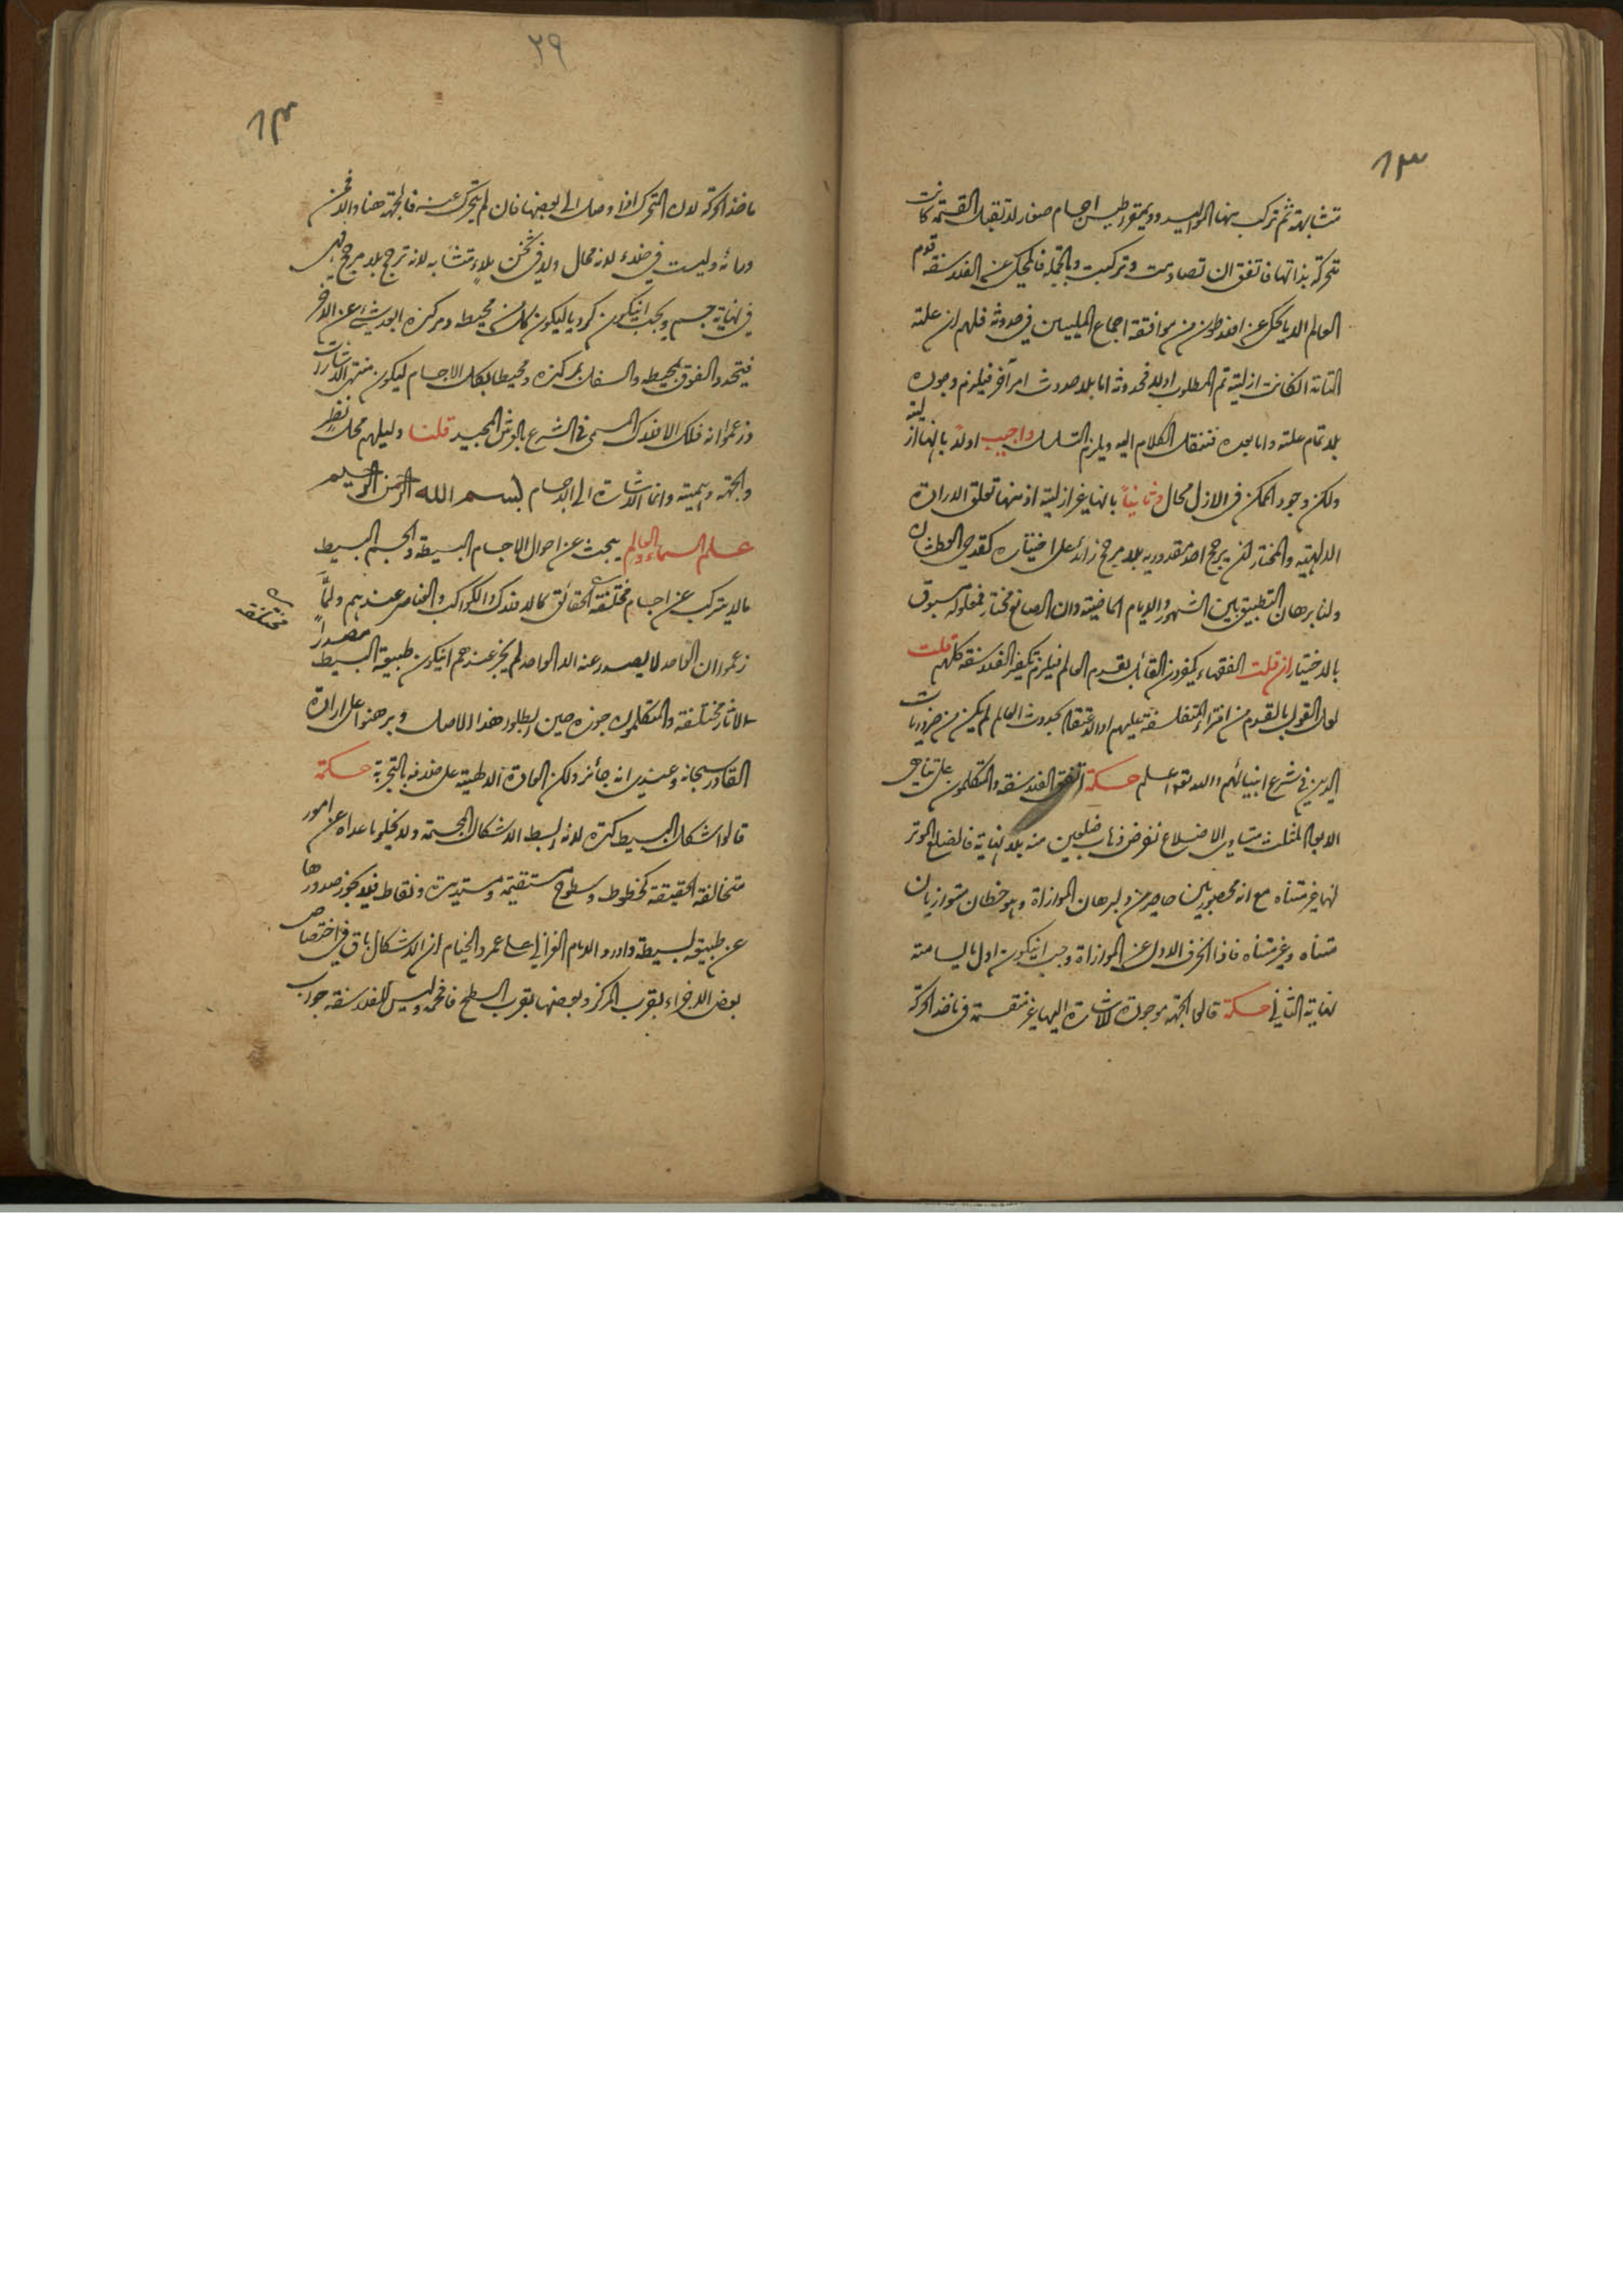 ٦٣
متشابهة ثم تركب منها المواليد وديمقراطيس اجسام صغار لا تقبل القسمة كانت
متحركة بذاتها فاتفق ان تصادمت وتركبت وبالجملة فالمحكي عن الفلاسفة قدم
العالم الا ما يحكى عن افلاطون من موافقة اجماع المليين في حدوثه فلهم ان علته
التامة ان كانت ازلية تم المطلوب اولا فحدوثه اما بلا حدوث امر آخر فيلزم وجوده
بلا تمام علته واما بعده فننقل الكلام اليه ويلزم التسلسل واجيب اولا بانها ازلية
ولكن وجود الممكن في الازل محال وثانياً بانها غير ازلية اذ منها تعلق الارادة
الالهية والمختار يرجح احد مقدوريه بلا مرجح زائد على اختياره كقدحي العطشان
ولنا برهان التطبيق بين الشهور والايام الماضية وان الصانع مختار فمعلوله مسبوق
بالاختيار ان قلت الفقهاء يكفرون القائل بقدم العالم فيلزم تكفير الفلاسفة كلهم قلت
لعل القول بالقدم من افتراء المتفلسفة عليهم او الاعتقاد بحدوث العالم لم يكن من ضروريات
الدين في شرع انبيائهم والله تعالى اعلم حكمة اتفق الفلاسفة والمتكلمون على تناهي
الابعاد المثلث متساوي الاضلاع نفرض ذهاب ضلعين منه بلا نهاية فالضلع الموتر
لهما غير متناه مع انه محصور بين حاصرين ولبرهان الموازاة وهو خطان متوازيان
متناه وغير متناه فاذا انحرف الاول عن الموازاة وجب ان يكون اول ما يسامته
نهاية الثاني حكمة قالوا الجهة موجودة للاشارة اليها غير منقسمة في مأخذ الحركة
٢٩
٦٤
مأخذ الحركة لان المتحرك اذا وصل الى بعضها فان لم يتحرك عنه فالجهة هذا والا فمن
ورائه وليست في خلاء لانه محال ولا في ثخن ملاء متشابه لانه ترجح بلا مرجح فهي
في نهاية جسم ويجب ان يكون كرويا ليكون كل من محيطه ومركزه ابعد شيء عن الآخر
فيتحدد الفوق بمحيطه والسفل بمركزه ومحيطا بكل الاجسام ليكون منتهى الاشارات
وزعموا انه فلك الافلاك المسمى في الشرع بالعرش المجيد قلنا دليلهم محل نظر
والجهة وهمية وانما الاشارة الى الاجسام بسم الله الرحمن الرحيم
علم السماء والعالم يبحث عن احوال الاجسام البسيطة والجسم البسيط
ما لا يتركب عن اجسام مختلفة الحقائق كالافلاك والكواكب والعناصر عندهم ولما
مختلفة
زعموا ان الواحد لا يصدر عنه الا الواحد لم يجز عندهم ان يكون طبيعة البسيط مصدراً
لآثار مختلفة والمتكلمون جوزوه حين ابطلوا هذا الاصل وبرهنوا على ارادة
القادر سبحانه وعندي انه جائز ولكن العادة الالهية على خلافه بالتجربة حكمة
قالوا شكل البسيط كرة لانه ابسط الاشكال المجسمة ولا يخلو ما عداه عن امور
متخالفة الحقيقة كخطوط وسطوح مستقيمة ومستديرة ونقاط فلا يجوز صدورها
عن طبيعة بسيطة واورد الامام الغزالي على عمر والخيام ان الاشكال باق في اختصاص
بعض الاجزاء بقرب المركز وبعضها بقرب السطح فافحمه وليس للفلاسفة جواب